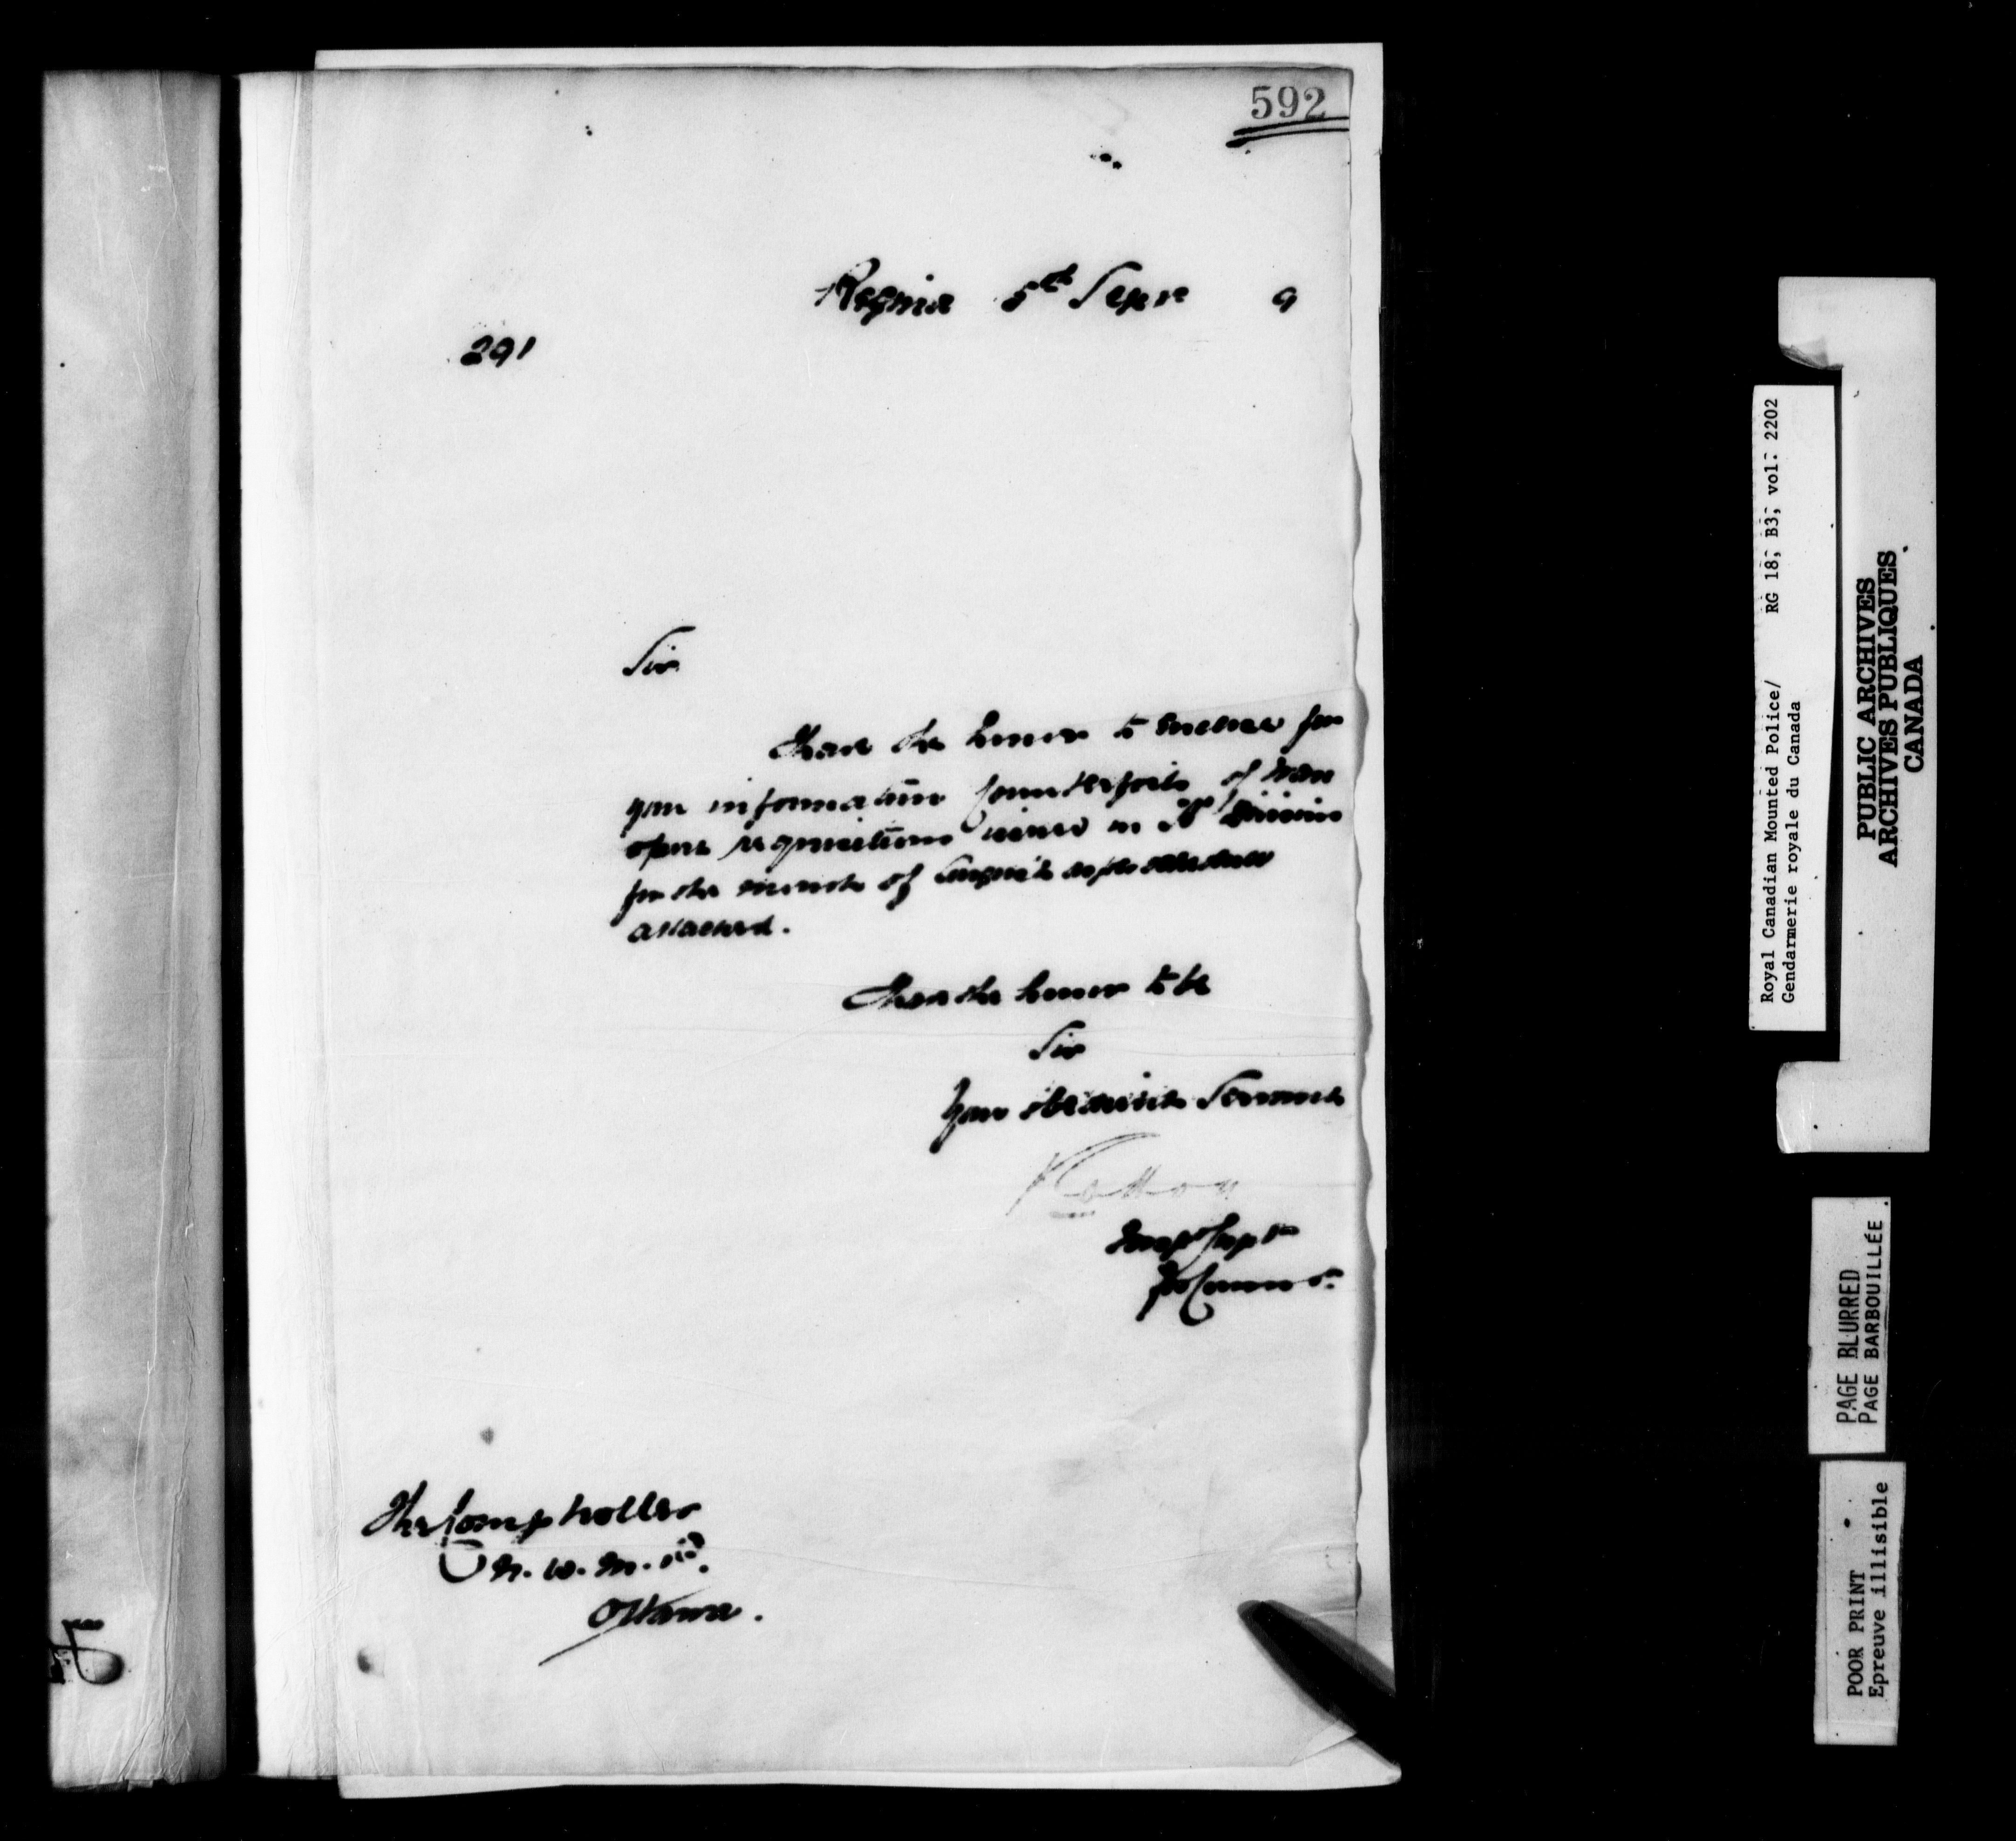 592
Regina 5th Sepr 9
291
Sir
I have the honor to enclose for
your information Counterfoils of Tran
sport requisitions issued in "B" Division
for the month of August as per schedule
attached.
I have the honor to be
Sir
Your obedient Servant
Cotton
Supt
for Commr.
The Comptroller
N. W. M. P.
Ottawa.
Royal Canadian Mounted Police/ RG 18, B3, vol. 2202
Gendarmerie royale du Canada
PUBLIC ARCHIVES
ARCHIVES PUBLIQUES
CANADA
PAGE BLURRED
PAGE BARBOUILLÉE
POOR PRINT
Epreuve illisible